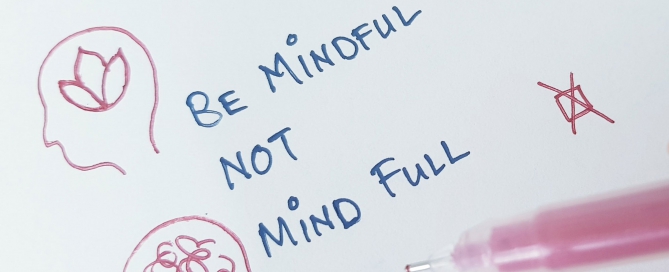 BE MiNDFUL
NOT
MiND FULL